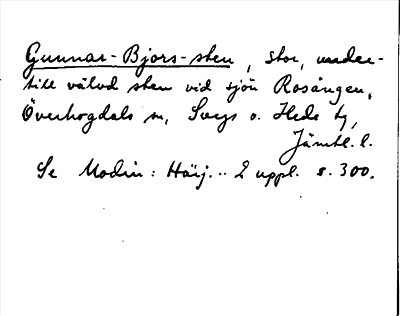 Gunnar-Bjors-sten, stor, under-
till välvd sten vid sjön Rosången,
Överhogdals sn, Svegs o. Hede tg,
Jämtl. l.
Se Modin: Härj... 2 uppl. s. 300.